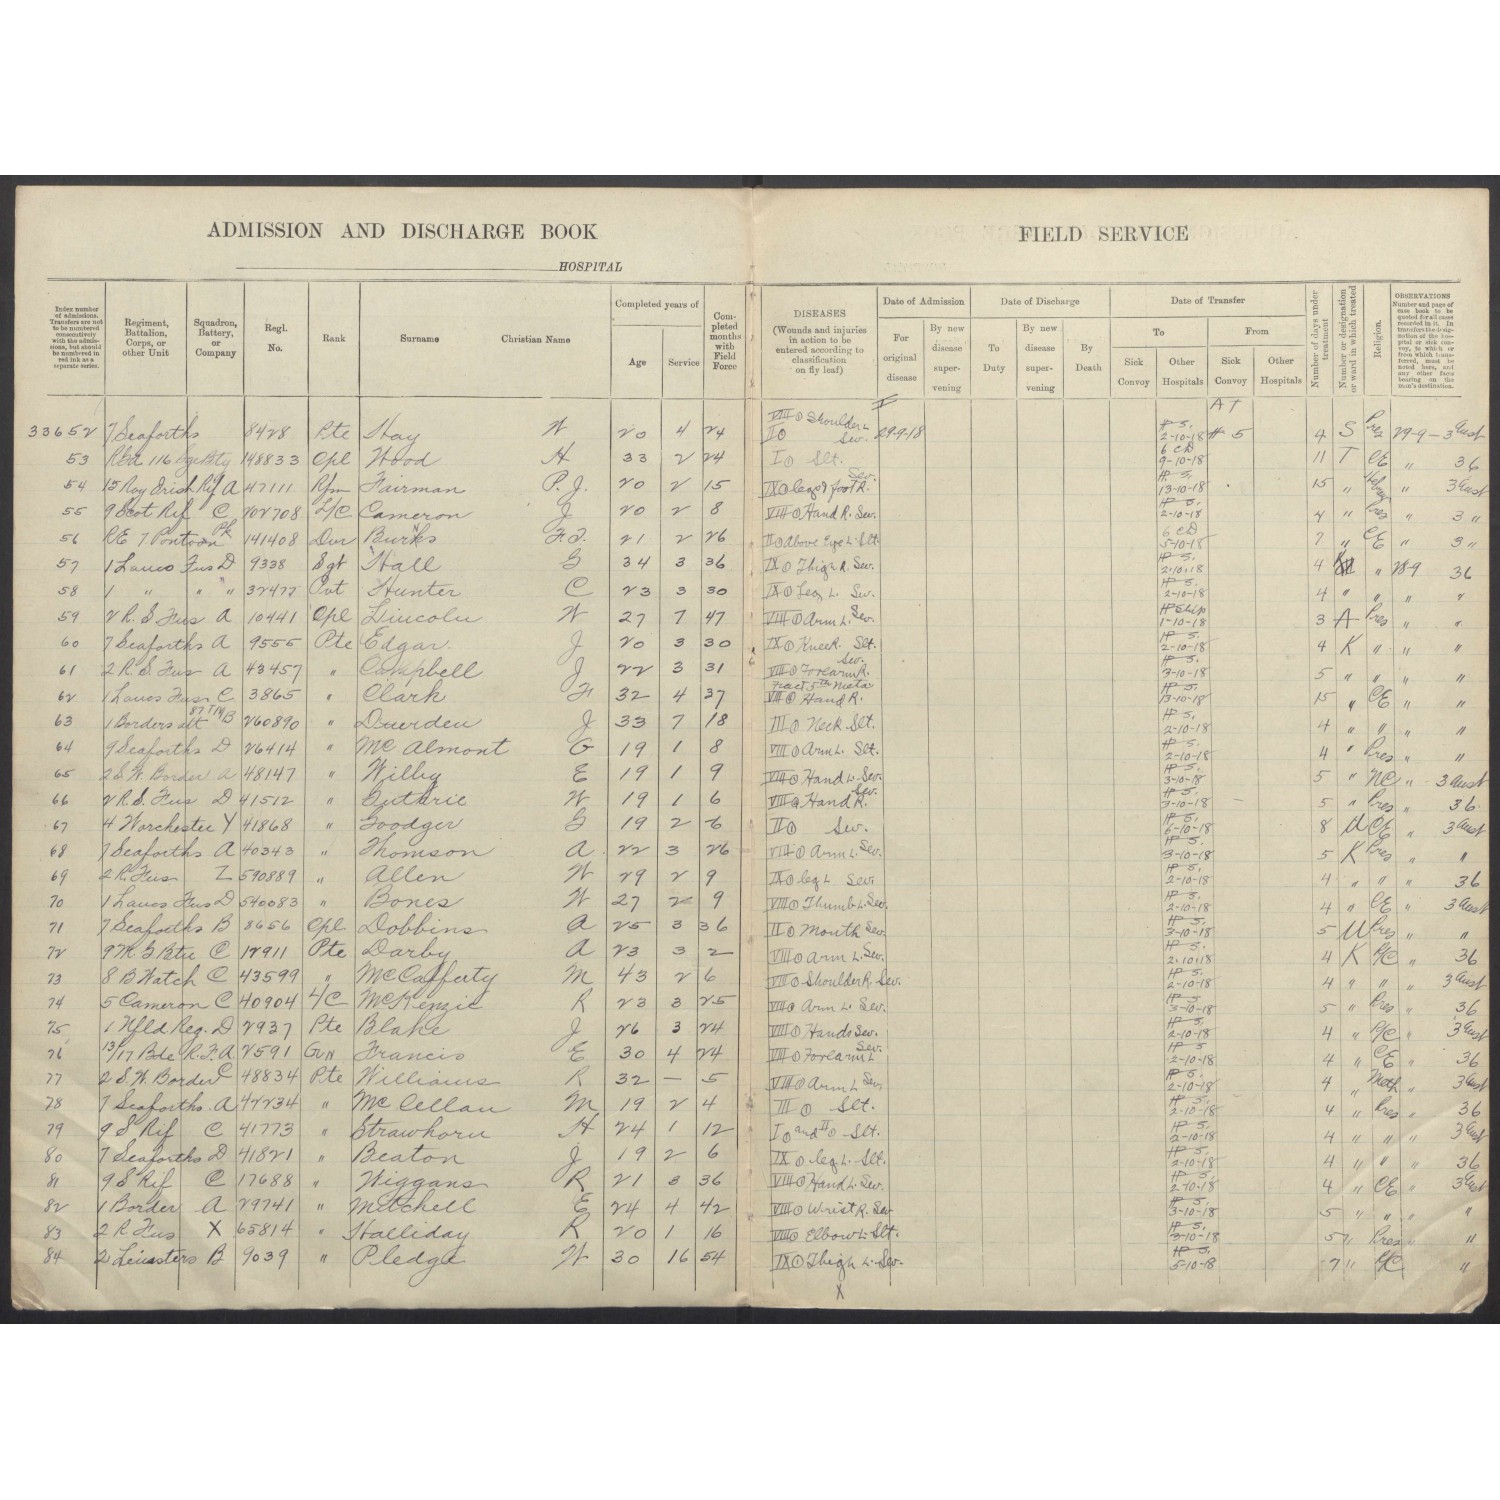 ADMISSION AND DISCHARGE BOOK
HOSPITAL
FIELD SERVICE
Index number of admissions. Transfers are not to be numbered consecutively with the admissions, but should be numbered in red ink as a separate series.
Regiment, Battalion, Corps, or other Unit
Squadron, Battery, or Company
Regl. No.
Rank
Surname
Christian Name
Completed years of
Age
Service
Completed months with Field Force
DISEASES
(Wounds and injuries in action to be entered according to classification on fly leaf)
Date of Admission
For original disease
By new disease supervening
Date of Discharge
To Duty
By new disease supervening
By Death
Date of Transfer
To
From
Sick Convoy
Other Hospitals
Sick Convoy
Other Hospitals
Number of days under treatment
Number or designation of ward in which treated
Religion.
OBSERVATIONS
Number and page of case book to be quoted for all cases recorded in it. In transfers the designation of the hospital or sick convoy, to which or from which transferred, must be noted here, and any other facts bearing on the man's destination.
A T
33652 7 Seaforths 8428 Pte Hay W 20 4 24 VIII Shoulder L II Sev. 29-9-18 # 5. 2-10-18 # 5 4 S Pres 29-9- 3 Aust
53 116 148833 Cpl Wood H 33 2 24 I Slt. 6 CD 9-10-18 11 T CE " 36
54 15 Roy Irish Rif A 47111 Rfm Fairman P. J. 20 2 15 IX leg & foot R. Sev. # 5. 13-10-18 15 " " 3 Aust
55 9 Scot Rif C 202708 L/C Cameron J 20 2 8 VIII Hand R. Sev. # 5. 2-10-18 4 " Pres " 3 "
56 RE 7 Pontoon Pk 141408 Dvr Burks F. J. 21 2 26 II Above Eye L. Slt. 6 CD 5-10-18 7 " CE " 3 "
57 1 Lancs Fus D 9338 Sgt Hall G 34 3 36 IX Thigh R. Sev. # 5. 2.10.18 4 " 28-9 36
58 1 " " " 32477 Pvt Hunter C 23 3 30 IX Leg L. Sev. # 5. 2-10-18 4 " " " "
59 2 R. S Fus A 10441 Cpl Lincoln W 27 7 47 VIII Arm L. Sev. # Ship 1-10-18 3 A Pres " "
60 7 Seaforths A 9555 Pte Edgar. J 20 3 30 IX Knee R. Slt. # 5. 2-10-18 4 K " " "
61 2 R. S. Fus A 43457 " Campbell J 22 3 31 VIII Forearm R. Sev. # 5. 3-10-18 5 " " " "
62 1 Lancs Fus C 3865 " Clark F 32 4 37 Fract 5th Meta VIII Hand R. # 5. 13-10-18 15 " CE " "
63 1 Borders att 87 TMB 260890 " Duerden J 33 7 18 III Neck Slt. # 5. 2-10-18 4 " " " "
64 9 Seaforths D 26414 " Mc Almont G 19 1 8 VIII Arm L. Slt. # 5. 2-10-18 4 " Pres " "
65 2 S. W. Border A 48147 " Wilby E 19 1 9 VIII Hand L. Sev. # 5. 3-10-18 5 " NC " 3 Aust
66 2 R. S. Fus D 41512 " Guthrie W 19 1 6 VIII Hand R. Sev. # 5. 3-10-18 5 " Pres " 36
67 4 Worchester Y 41868 " Goodger G 19 2 6 II Sev. # 5. 6-10-18 8 U CE " 3 Aust
68 7 Seaforths A 40343 " Thomson A 22 3 26 VIII Arm L. Sev. # 5. 3-10-18 5 K Pres " "
69 2 R. Fus Z 590889 " Allen W 29 2 9 IX leg L Sev. # 5. 2-10-18 4 " " " 36
70 1 Lancs Fus D 540083 " Bones W 27 2 9 VIII Thumb L. Sev. # 5. 2-10-18 4 " CE " 3 Aust
71 7 Seaforths B 8656 Cpl Dobbins A 25 3 36 II Mouth Sev. # 5. 3-10-18 5 U Pres " "
72 9 M. G Btn C 12911 Pte Darby A 23 3 2 VIII Arm L. Sev. # 5. 2.10.18 4 K R/C " 36
73 8 B Watch C 43599 " McCafferty M 43 2 6 VIII Shoulder R. Sev. # 5. 2-10-18 4 " " " 3 Aust
74 5 Cameron C 40904 L/C McKenzie R 23 3 25 VIII Arm L. Sev. # 5. 3-10-18 5 " Pres " 36
75 1 Nfld Reg. D 2937 Pte Blake J 26 3 24 VIII Hands Sev. # 5. 2-10-18 4 " R/C " 3 Aust
76 13/17 Bde R. F. A 2591 Gun Francis E 30 4 24 VIII Forearm L Sev. # 5 2-10-18 4 " CE " 36
77 2 S. W. Border C 48834 Pte Williams R 32 — 5 VIII Arm L Sev. # 5. 2-10-18 4 " Meth " 3 Aust
78 7 Seaforths. A 42234 " Mc Cellan M 19 2 4 III Slt. # 5. 2-10-18 4 " Pres " 36
79 9 S Rif C 41773 " Strawhorn H 24 1 12 I and II Slt. # 5. 2-10-18 4 " " " 3 Aust
80 7 Seaforths D 41821 " Beaton J 19 2 6 IX leg L. Slt. # 5. 2-10-18 4 " " " 36
81 9 S Rif C 17688 " Wiggans R 21 3 36 VIII Hand L. Sev. # 5. 2-10.18 4 " CE " 3 Aust
82 1 Border A 29741 " Mitchell E 24 4 42 VIII Wrist R. Sev # 5. 3-10-18 5 " " " "
83 2 R. Fus X 65814 " Halliday R 20 1 16 VIII Elbow L. Slt. # 5. 3-10-18 5 " Pres " "
84 2 Leinsters B 9039 " Pledge W 30 16 54 IX Thigh L. Sev. # 5. 5-10-18 7 " R/C "
X